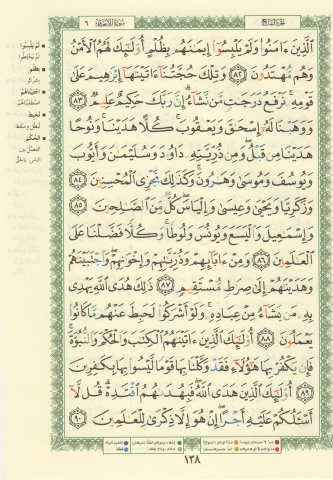 الجزء السابع
سورة الأنعام ٦
الَّذِينَ ءَامَنُوا وَلَمْ يَلْبِسُوٓا إِيمَـٰنَهُم بِظُلْمٍ أُو۟لَـٰٓئِكَ لَهُمُ الْأَمْنُ
وَهُم مُّهْتَدُونَ ٨٢ وَتِلْكَ حُجَّتُنَآ ءَاتَيْنَـٰهَآ إِبْرَٰهِيمَ عَلَىٰ
قَوْمِهِۦ نَرْفَعُ دَرَجَـٰتٍ مَّن نَّشَآءُ إِنَّ رَبَّكَ حَكِيمٌ عَلِيمٌ ٨٣
وَوَهَبْنَا لَهُۥٓ إِسْحَـٰقَ وَيَعْقُوبَ كُلًّا هَدَيْنَا وَنُوحًا
هَدَيْنَا مِن قَبْلُ وَمِن ذُرِّيَّتِهِۦ دَاوُۥدَ وَسُلَيْمَـٰنَ وَأَيُّوبَ
وَيُوسُفَ وَمُوسَىٰ وَهَـٰرُونَ وَكَذَٰلِكَ نَجْزِى الْمُحْسِنِينَ ٨٤
وَزَكَرِيَّا وَيَحْيَىٰ وَعِيسَىٰ وَإِلْيَاسَ كُلٌّ مِّنَ الصَّـٰلِحِينَ ٨٥
وَإِسْمَـٰعِيلَ وَالْيَسَعَ وَيُونُسَ وَلُوطًا وَكُلًّا فَضَّلْنَا عَلَى
الْعَـٰلَمِينَ ٨٦ وَمِنْ ءَابَآئِهِمْ وَذُرِّيَّـٰتِهِمْ وَإِخْوَٰنِهِمْ وَاجْتَبَيْنَـٰهُمْ
وَهَدَيْنَـٰهُمْ إِلَىٰ صِرَٰطٍ مُّسْتَقِيمٍ ٨٧ ذَٰلِكَ هُدَى اللَّهِ يَهْدِى
بِهِۦ مَن يَشَآءُ مِنْ عِبَادِهِۦ وَلَوْ أَشْرَكُوا لَحَبِطَ عَنْهُم مَّا كَانُوا
يَعْمَلُونَ ٨٨ أُو۟لَـٰٓئِكَ الَّذِينَ ءَاتَيْنَـٰهُمُ الْكِتَـٰبَ وَالْحُكْمَ وَالنُّبُوَّةَ
فَإِن يَكْفُرْ بِهَا هَـٰٓؤُلَآءِ فَقَدْ وَكَّلْنَا بِهَا قَوْمًا لَّيْسُوا بِهَا بِكَـٰفِرِينَ
٨٩ أُو۟لَـٰٓئِكَ الَّذِينَ هَدَى اللَّهُ فَبِهُدَىٰهُمُ اقْتَدِهْ قُل لَّآ
أَسْـَٔلُكُمْ عَلَيْهِ أَجْرًا إِنْ هُوَ إِلَّا ذِكْرَىٰ لِلْعَـٰلَمِينَ ٩٠
لم يلبسوا
لم يخلطوا
بظلم
بشرك
اجتبيناهم
اصطفيناهم
لحبط
لبطل وسقط
١٣٨